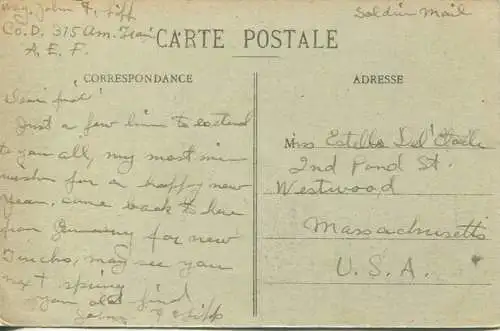 Wag. John F. Zipp
Soldier Mail
Co. D. 315 Am. Train
A. E. F.
CARTE POSTALE
CORRESPONDANCE
ADRESSE
Dear friend
Just a few lines to extend
to you all, my most sin
wishes for a happy new
year. came back to here
from Germany for new
Trucks, may see you
next spring
your old friend
John F Zipp
Miss Estella Del'Etoile
2nd Pond St.
Westwood
Massachusetts
U. S. A.